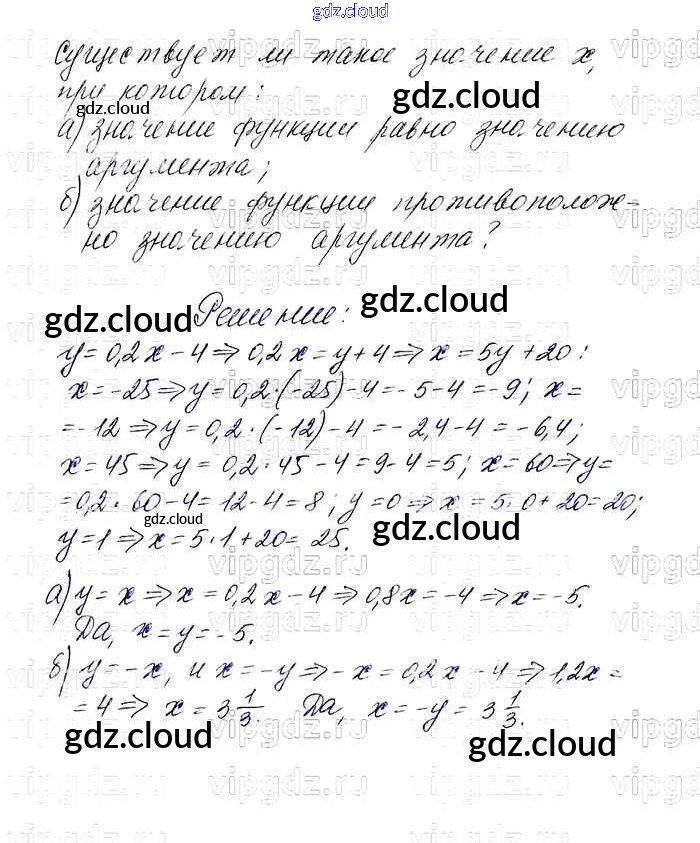 gdz.cloud
Существует ли такое значение x,
при котором:
gdz.cloud gdz.cloud
а) значение функции равно значению
аргумента;
б) значение функции противополож-
но значению аргумента?
gdz.cloud Решение: gdz.cloud
y = 0,2x - 4 ⇒ 0,2x = y + 4 ⇒ x = 5y + 20:
x = -25 ⇒ y = 0,2·(-25) - 4 = -5 - 4 = -9; x =
= -12 ⇒ y = 0,2·(-12) - 4 = -2,4 - 4 = -6,4;
x = 45 ⇒ y = 0,2·45 - 4 = 9 - 4 = 5; x = 60 ⇒ y =
= 0,2·60 - 4 = 12 - 4 = 8; y = 0 ⇒ x = 5·0 + 20 = 20;
gdz.cloud gdz.cloud
y = 1 ⇒ x = 5·1 + 20 = 25.
а) y = x ⇒ x = 0,2x - 4 ⇒ 0,8x = -4 ⇒ x = -5.
Да, x = y = -5.
б) y = -x, и x = -y ⇒ -x = 0,2x - 4 ⇒ 1,2x =
= 4 ⇒ x = 3 1/3. Да, x = -y = 3 1/3.
gdz.cloud gdz.cloud
vipgdz.ru